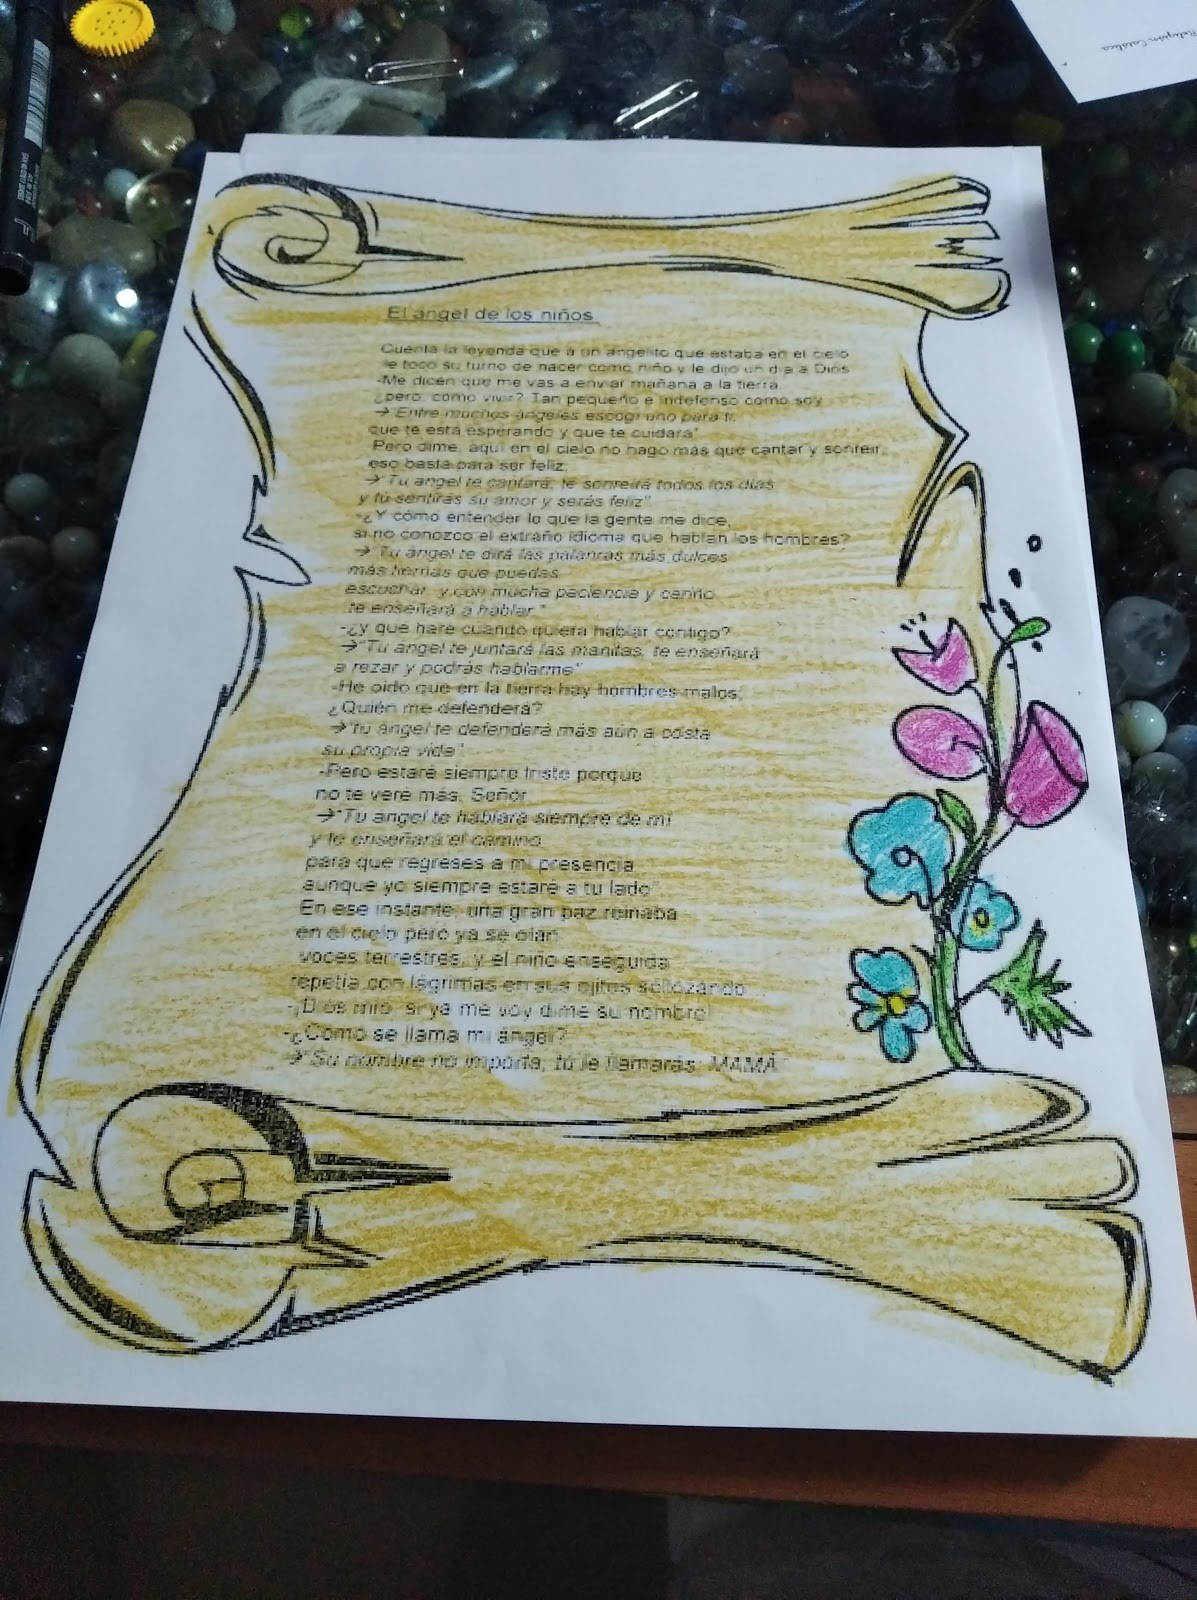 Religión Católica
El ángel de los niños
Cuenta la leyenda que a un angelito que estaba en el cielo
le toco su turno de nacer como niño y le dijo un dia a Dios
-Me dicen que me vas a enviar mañana a la tierra.
¿pero, como vivir? Tan pequeño e indefenso como soy
→"Entre muchos ángeles escogí uno para ti,
que te está esperando y que te cuidará"
Pero dime, aquí en el cielo no hago más que cantar y sonreír,
eso basta para ser feliz.
→"Tu ángel te cantará, te sonreirá todos los días
y tú sentirás su amor y serás feliz"
-¿Y cómo entender lo que la gente me dice,
si no conozco el extraño idioma que hablan los hombres?
→"Tu ángel te dirá las palabras más dulces
más tiernas que puedas
escuchar y con mucha paciencia y cariño
te enseñará a hablar."
-¿y que haré cuando quiera hablar contigo?
→"Tu angel te juntará las manitas, te enseñará
a rezar y podrás hablarme"
-He oido que en la tierra hay hombres malos,
¿Quién me defenderá?
→"tu ángel te defenderá más aún a costa
su propia vida"
-Pero estaré siempre triste porque
no te veré más, Señor
→"Tu angel te hablará siempre de mi
y te enseñará el camino
para que regreses a mi presencia
aunque yo siempre estaré a tu lado".
En ese instante, una gran paz reinaba
en el cielo pero ya se oían
voces terrestres, y el niño enseguida
repetía con lágrimas en sus ojitos sollozando...
-¡Dios mío, si ya me voy dime su nombre!
-¿Como se llama mi ángel?
→"Su nombre no importa, tú le llamarás: MAMÁ"